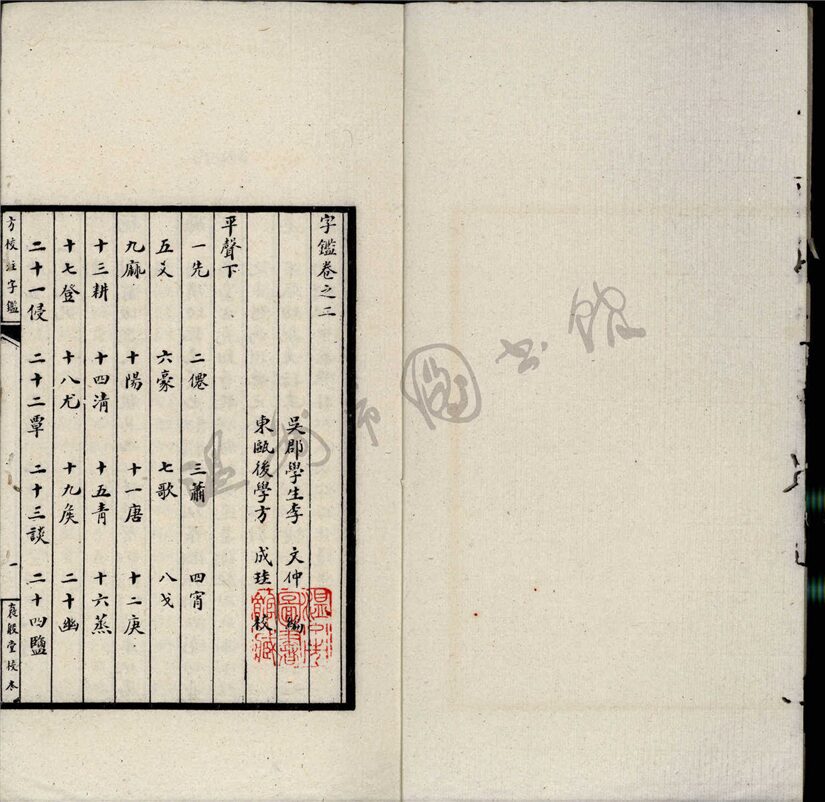 字鑑卷之二
吳郡學生李 文仲 編
東甌後學方 成珪 校
平聲下
一先 二僊 三蕭 四宵
五爻 六豪 七歌 八戈
九麻 十陽 十一唐 十二庚
十三耕 十四清 十五青 十六蒸
十七登 十八尤 十九矦 二十幽
二十一侵 二十二覃 二十三談 二十四鹽
方校註字鑑
一
袌殷堂校本
溫州市圖書館藏
溫州市图书馆